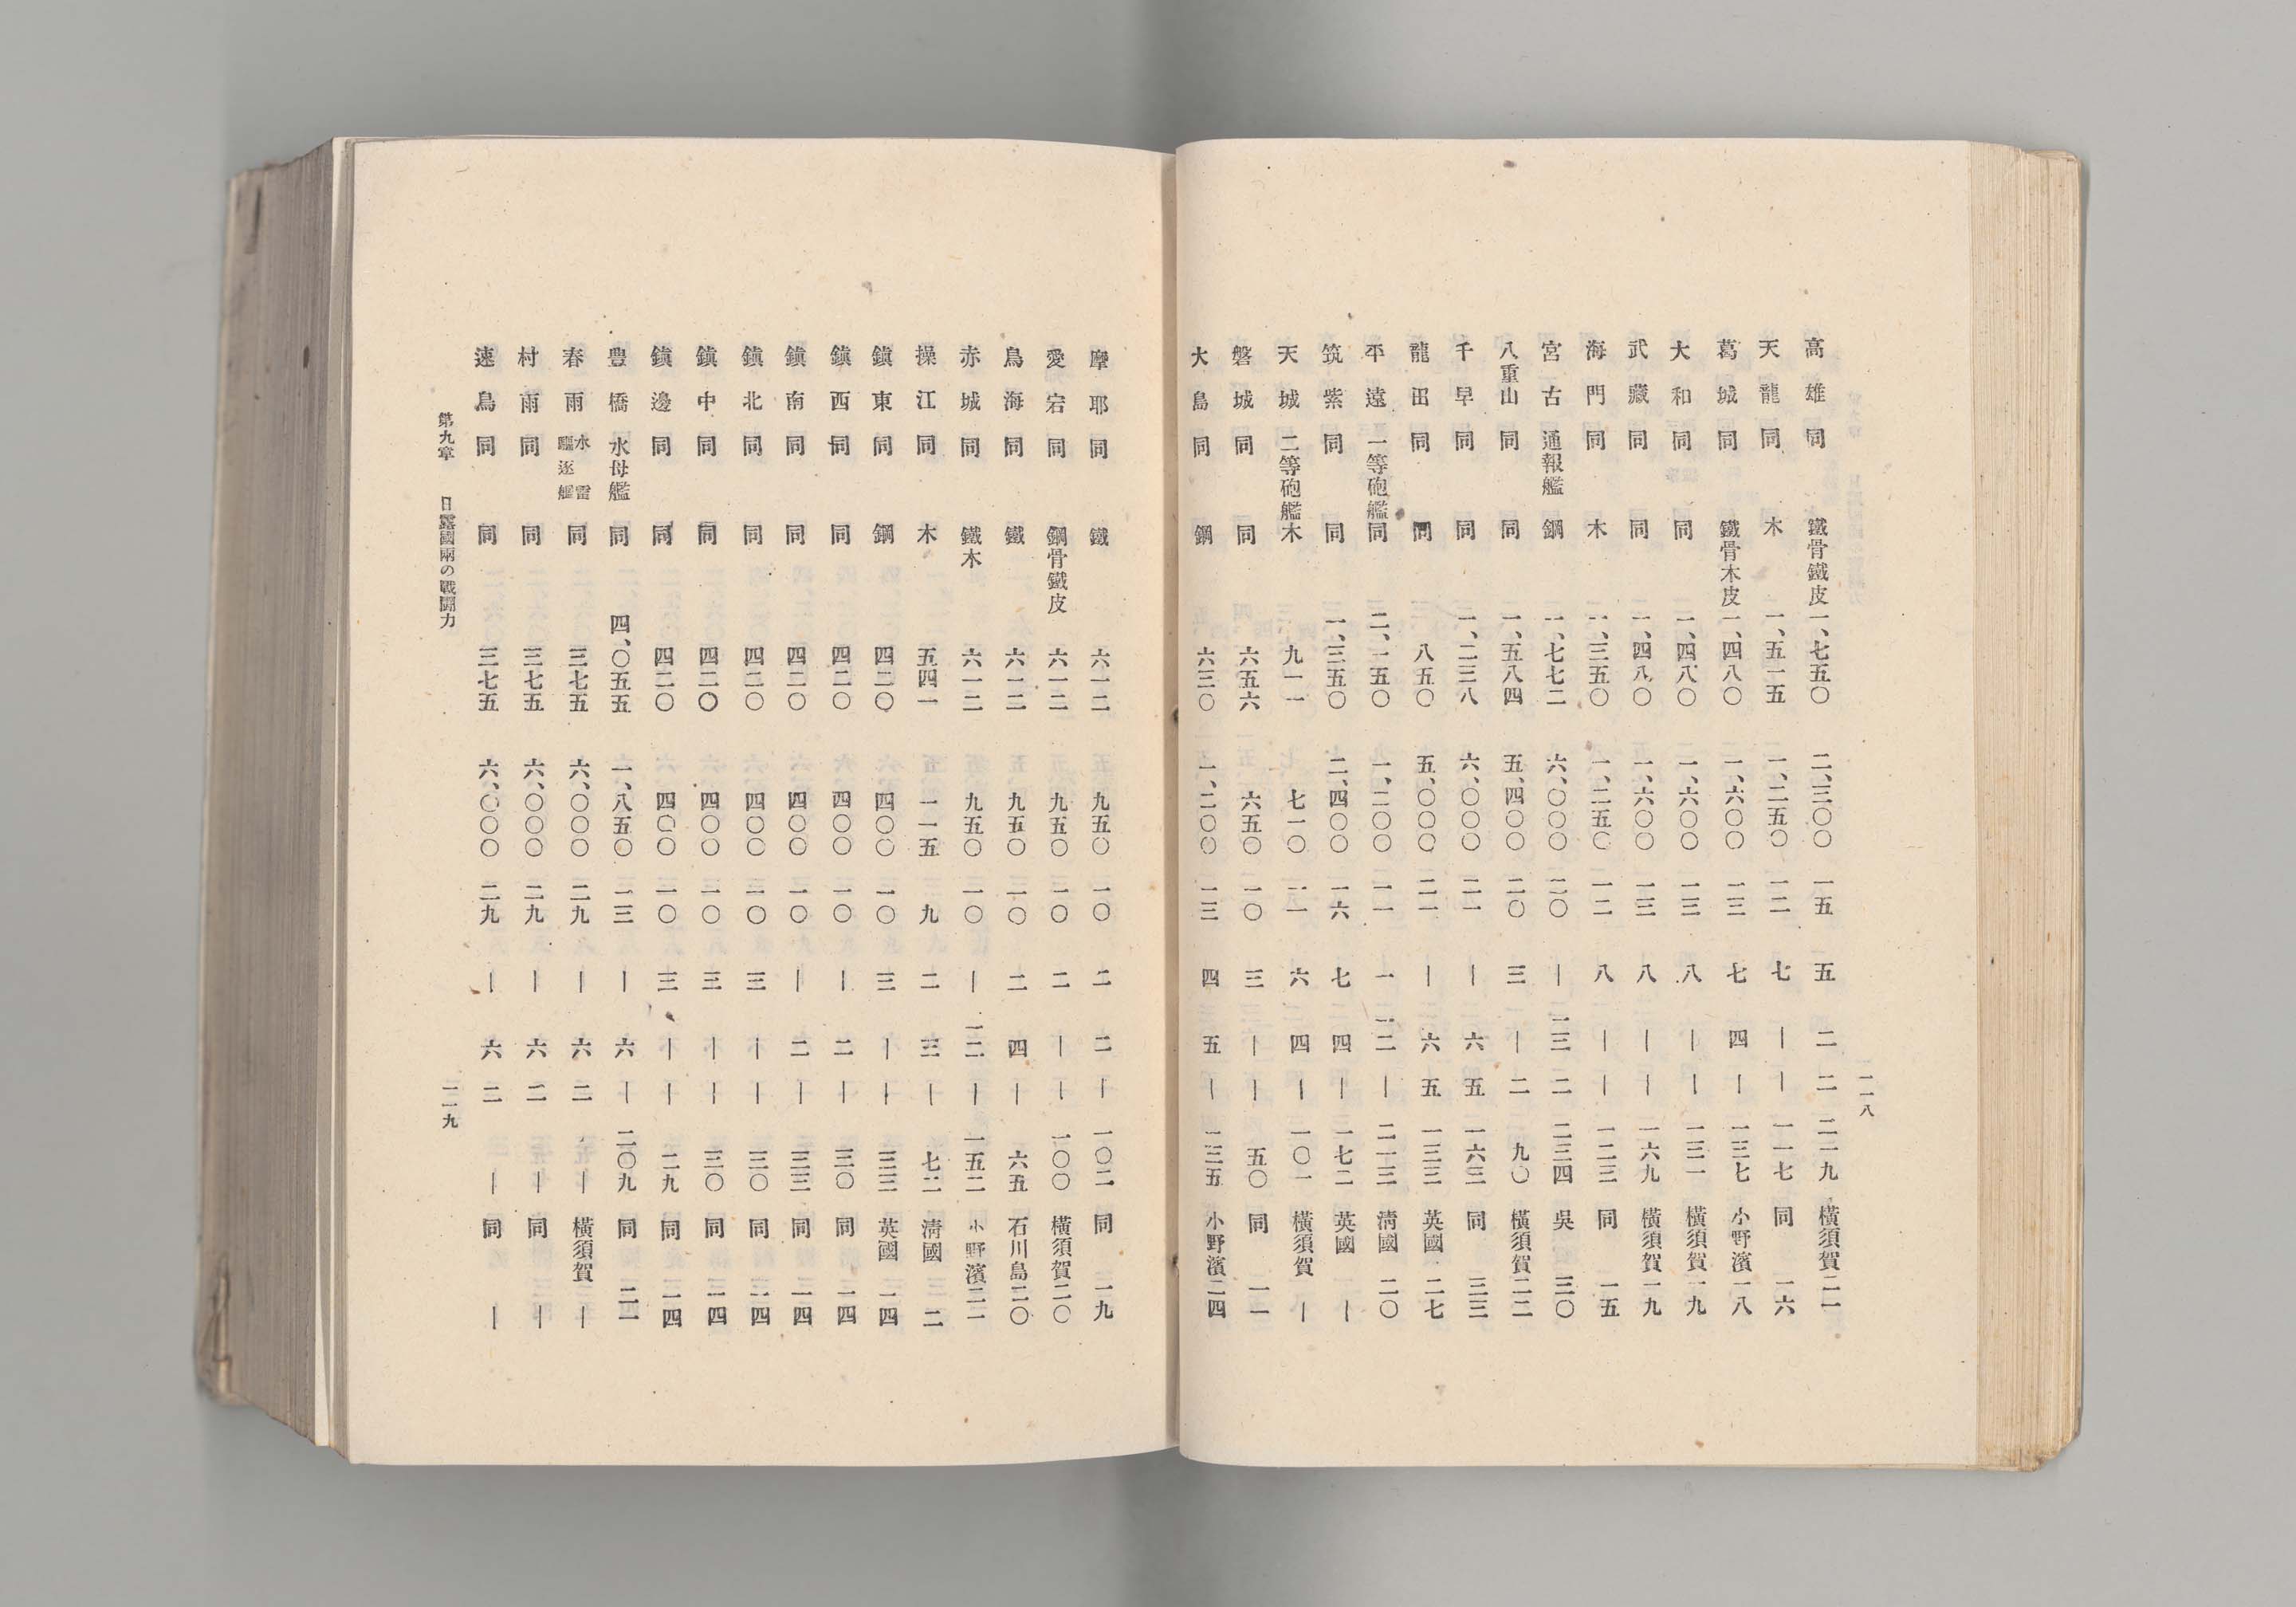 一一八
高雄 同 鐵骨鐵皮 一、七五〇 二、三〇〇 一五 五 二 二 二二九 橫須賀 二一
天龍 同 木 一、五一五 一、二五〇 一二 七 ｜ ｜ 一一七 同 一六
葛城 同 鐵骨木皮 一、四八〇 一、六〇〇 一三 七 四 ｜ 一三七 小野濱 一八
大和 同 同 一、四八〇 一、六〇〇 一三 八 ｜ ｜ 一三一 橫須賀 一九
武藏 同 同 一、四八〇 一、六〇〇 一三 八 ｜ ｜ 一六九 橫須賀 一九
海門 同 木 一、三五〇 一、二五〇 一二 八 ｜ ｜ 一二三 同 一五
宮古 通報艦 鋼 一、七七二 六、〇〇〇 二〇 ｜ 一三 二 二三四 吳 三〇
八重山 同 同 一、五八四 五、四〇〇 二〇 三 ｜ 二 九〇 橫須賀 二二
千早 同 同 一、二三八 六、〇〇〇 二一 ｜ 六 五 一六三 同 三三
龍田 同 同 八五〇 五、〇〇〇 二一 ｜ 六 五 一三三 英國 二七
平遠 一等砲艦 同 二、一五〇 一、二〇〇 一一 一 一二 ｜ 二一三 淸國 二〇
筑紫 同 同 一、三五〇 二、四〇〇 一六 七 四 ｜ 一七二 英國 ｜
天城 二等砲艦 木 九一一 七一〇 一一 六 四 ｜ 一〇一 橫須賀 ｜
磐城 同 同 六五六 六五〇 一〇 三 ｜ ｜ 五〇 同 一一
大島 同 鋼 六三〇 一、二〇〇 一三 四 五 ｜ 一三五 小野濱 二四
摩耶 同 鐵 六一二 九五〇 一〇 二 二 ｜ 一〇二 同 一九
愛宕 同 鋼骨鐵皮 六一二 九五〇 一〇 二 ｜ ｜ 一〇〇 橫須賀 二〇
鳥海 同 鐵 六一二 九五〇 一〇 二 四 ｜ 六五 石川島 二〇
赤城 同 鐵木 六一二 九五〇 一〇 ｜ 一二 ｜ 一五二 小野濱 二二
操江 同 木 五四一 一一五 九 二 三 ｜ 七二 淸國 二
鎭東 同 鋼 四二〇 四〇〇 一〇 三 ｜ ｜ 三三 英國 一四
鎭西 同 同 四二〇 四〇〇 一〇 ｜ 二 ｜ 三〇 同 一四
鎭南 同 同 四二〇 四〇〇 一〇 ｜ 二 ｜ 三三 同 一四
鎭北 同 同 四二〇 四〇〇 一〇 三 ｜ ｜ 三〇 同 一四
鎭中 同 同 四二〇 四〇〇 一〇 三 ｜ ｜ 三〇 同 一四
鎭邊 同 同 四二〇 四〇〇 一〇 三 ｜ ｜ 二九 同 一四
豊橋 水母艦 同 四、〇五五 一、八五〇 一三 ｜ 六 ｜ 二〇九 同 二一
春雨 水雷驅逐艦 同 三七五 六、〇〇〇 二九 ｜ 六 二 ｜ 橫須賀 ｜
村雨 同 同 三七五 六、〇〇〇 二九 ｜ 六 二 ｜ 同 ｜
速鳥 同 同 三七五 六、〇〇〇 二九 ｜ 六 二 ｜ 同 ｜
第九章 日露國兩の戰鬪力
一一九